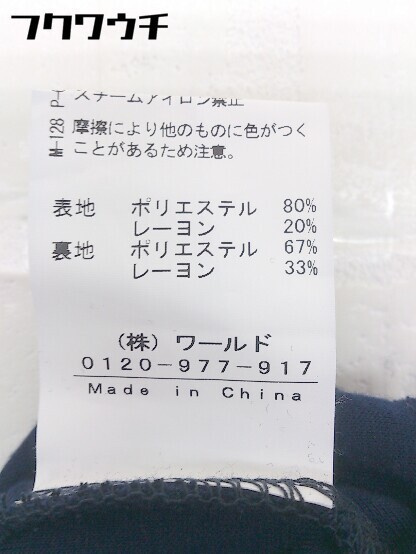 フクワウチ
スチームアイロン禁止
M-128 摩擦により他のものに色がつく
ことがあるため注意。
表地 ポリエステル 80%
レーヨン 20%
裏地 ポリエステル 67%
レーヨン 33%
(株) ワールド
0120-977-917
Made in China